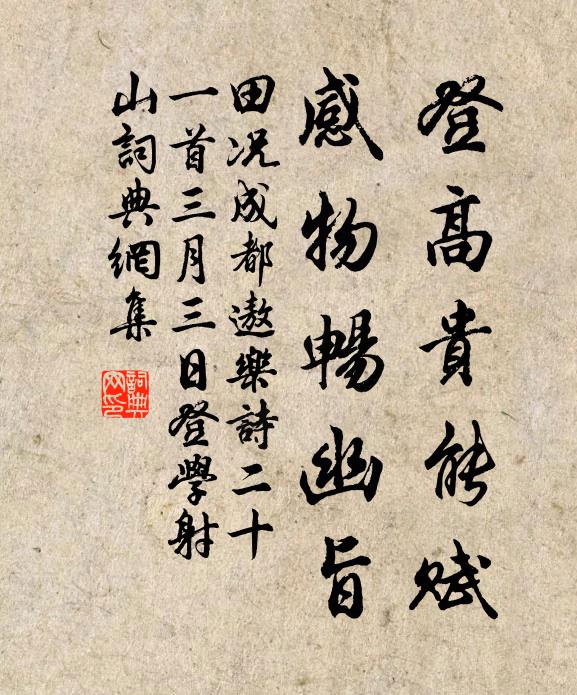 登高貴能賦
感物暢幽旨
田況成都遨樂詩二十
一首三月三日登學射
山詞典網集
詞典网印